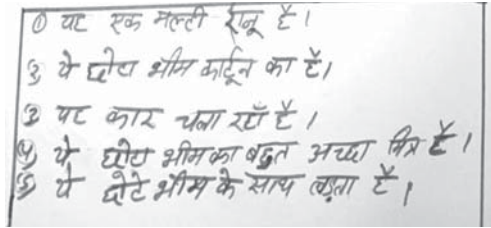 ① यह एक मल्टी रानू है।
② ये छोटा भीम कार्टून का है।
③ यह कार चला रहाँ है।
④ ये छोटा भीम का बहुत अच्छा मित्र है।
⑤ ये छोटे भीम के साथ लड़ता है।